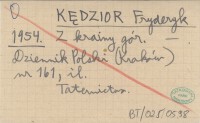 KĘDZIOR Fryderyk
1954. Z krainy gór. —
Dziennik Polski (Kraków)
nr 161, il.
Taternictwo.
BT/02.F.0538